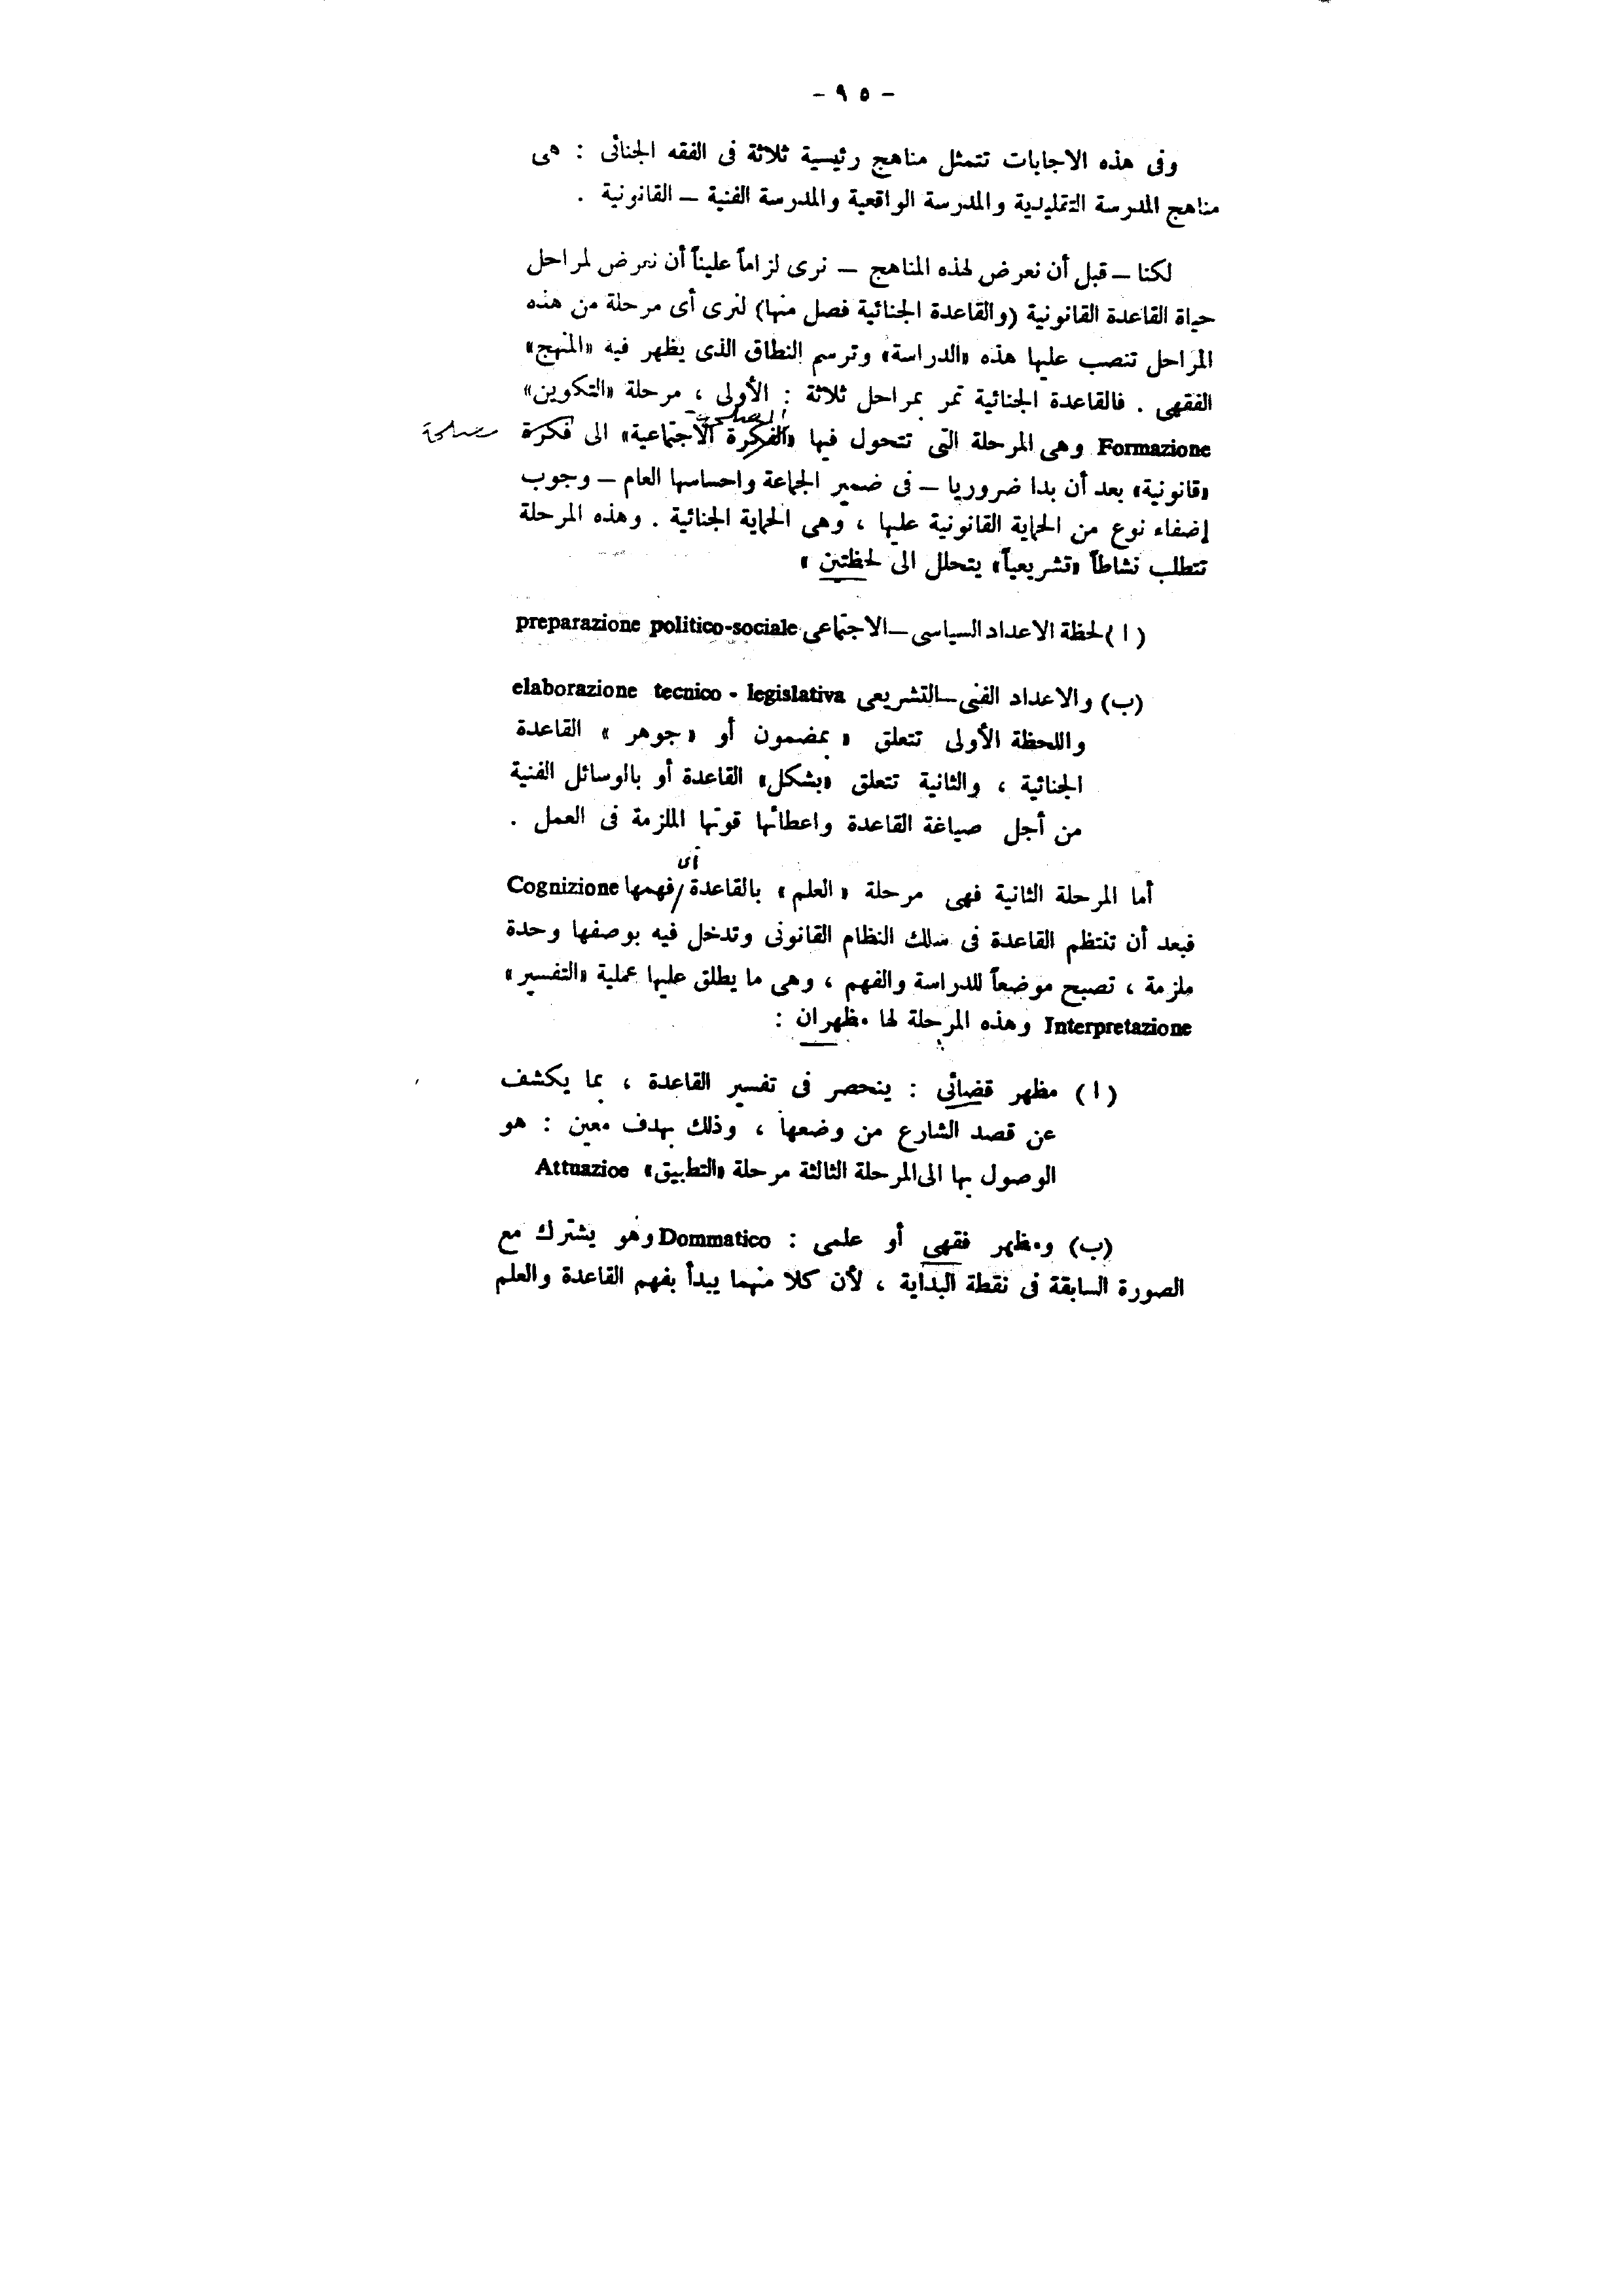 - ٩٥ -
وفى هذه الاجابات تتمثل مناهج رئيسية ثلاثة فى الفقه الجنائى : هى
مناهج المدرسة التقليدية والمدرسة الواقعية والمدرسة الفنية – القانونية .
لكنا – قبل أن نعرض لهذه المناهج – نرى لزاماً علينا أن نعرض لمراحل
حياة القاعدة القانونية (والقاعدة الجنائية فصل منها) لنرى أى مرحلة من هذه
المراحل تنصب عليها هذه «الدراسة» وترسم النطاق الذى يظهر فيه «المنهج»
الفقهى . فالقاعدة الجنائية تمر بمراحل ثلاثة : الأولى ، مرحلة «التكوين»
المصلحة
Formazione وهى المرحلة التى تتحول فيها «الفكرة الاجتماعية» الى فكرة مصلحة
«قانونية» بعد أن بدا ضروريا – فى ضمير الجماعة واحساسها العام – وجوب
إضفاء نوع من الحماية القانونية عليها ، وهى الحماية الجنائية . وهذه المرحلة
تتطلب نشاطاً «تشريعياً» يتحلل الى لحظتين »
(ا) لحظة الاعداد السياسى – الاجتماعى preparazione politico-sociale
(ب) والاعداد الفنى – التشريعى elaborazione tecnico - legislativa
واللحظة الأولى تتعلق « بمضمون أو « جوهر » القاعدة
الجنائية ، والثانية تتعلق «بشكل» القاعدة أو بالوسائل الفنية
من أجل صياغة القاعدة واعطائها قوتها الملزمة فى العمل .
أى
أما المرحلة الثانية فهى مرحلة « العلم » بالقاعدة / فهمها Cognizione
فبعد أن تنتظم القاعدة فى سلك النظام القانونى وتدخل فيه بوصفها وحدة
ملزمة ، تصبح موضعاً للدراسة والفهم ، وهى ما يطلق عليها عملية «التفسير»
Interpretazione وهذه المرحلة لها مظهران :
(ا) مظهر قضائى : ينحصر فى تفسير القاعدة ، بما يكشف
عن قصد الشارع من وضعها ، وذلك بهدف معين : هو
الوصول بها الى المرحلة الثالثة مرحلة «التطبيق» Attuazioe
(ب) ومظهر فقهى أو علمى : Dommatico وهو يشترك مع
الصورة السابقة فى نقطة البداية ، لأن كلا منهما يبدأ بفهم القاعدة والعلم